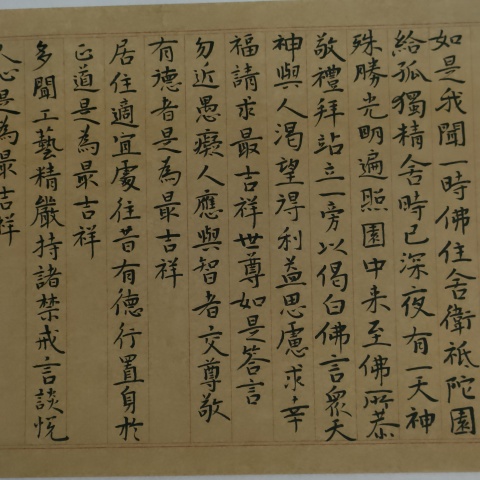 如是我聞一時佛住舍衛祗陀園
給孤獨精舍時已深夜有一天神
殊勝光明遍照園中来至佛所恭
敬禮拜站立一旁以偈白佛言眾天
神與人渴望得利益思慮求幸
福請求最吉祥世尊如是答言
勿近愚癡人應與智者交尊敬
有德者是為最吉祥
居住適宜處往昔有德行置身於
正道是為最吉祥
多聞工藝精嚴持諸禁戒言談悅
人心是為最吉祥